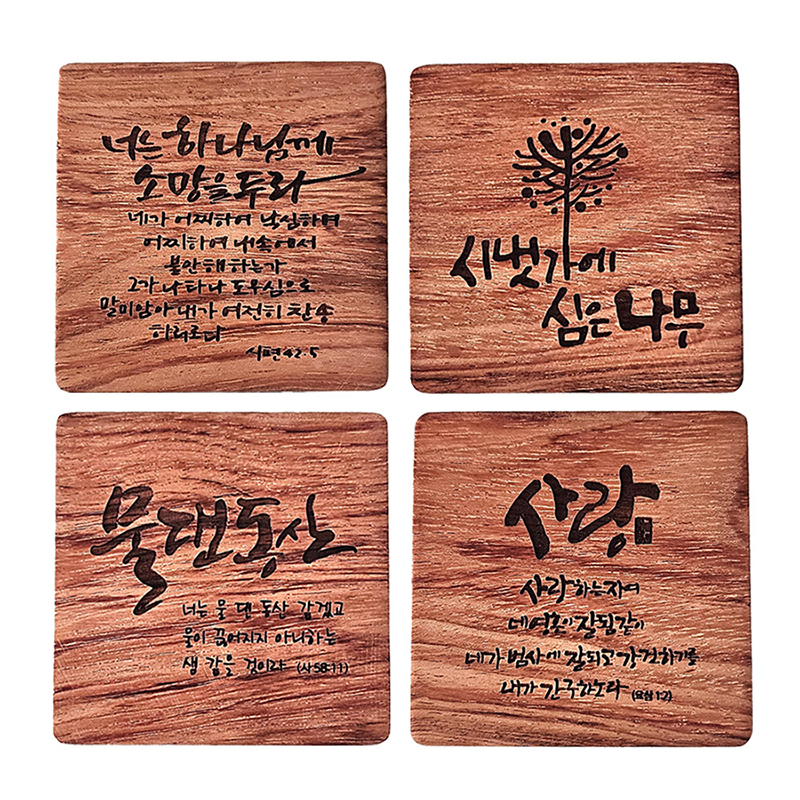 너는 하나님께
소망을 두라
네가 어찌하여 낙심하며
어찌하여 내 속에서
불안해 하는가
그가 나타나 도우심으로
말미암아 내가 여전히 찬송
하리로다
시편 42·5
시냇가에
심은 나무
물댄동산
너는 물 댄 동산 같겠고
물이 끊어지지 아니하는
샘 같을 것이라 (사 58:11)
사랑
사랑하는 자여
네 영혼이 잘됨 같이
네가 범사에 잘되고 강건하기를
내가 간구하노라 (요삼 1:2)